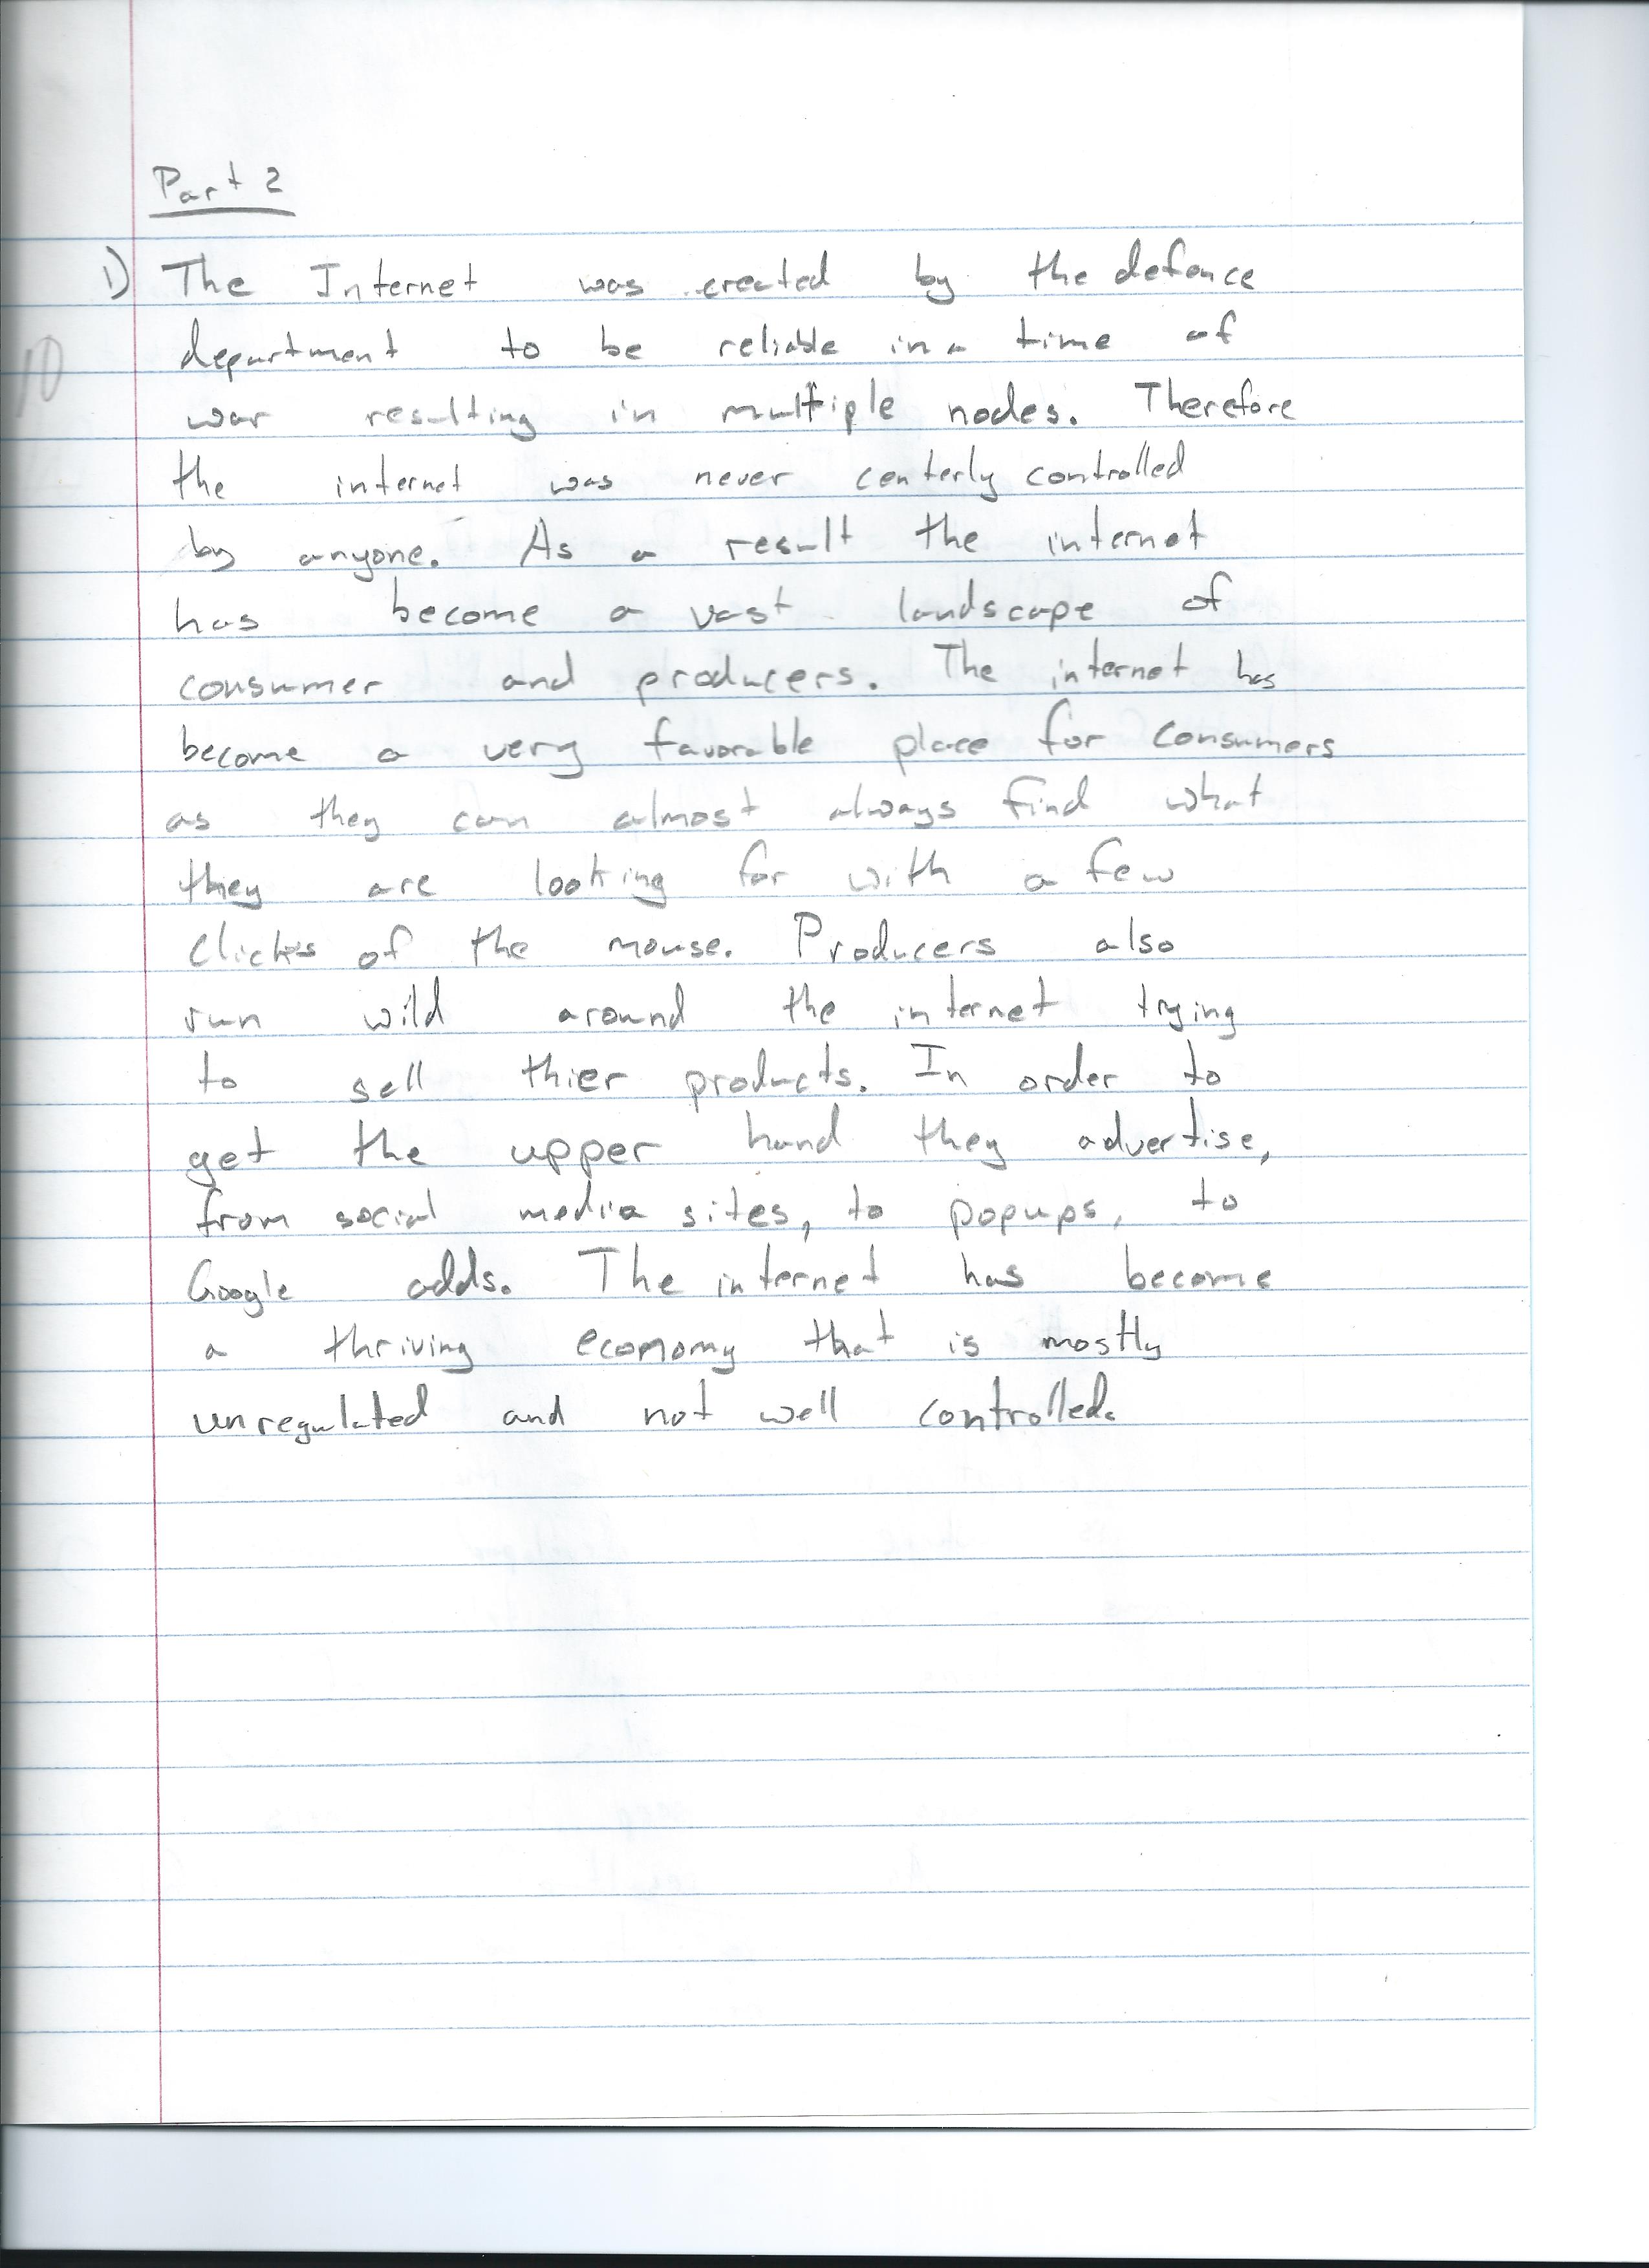 Part 2
1) The Internet was created by the defence
department to be reliable in a time of
10
war resulting in multiple nodes. Therefore
the internet was never centerly controlled
by anyone. As a result the internet
has become a vast landscape of
consumer and producers. The internet has
become a very favorable place for consumers
as they can almost always find what
they are looking for with a few
clicks of the mouse. Producers also
run wild around the internet trying
to sell thier products. In order to
get the upper hand they advertise,
from social media sites, to popups, to
Google adds. The internet has become
a thriving economy that is mostly
unregulated and not well controlled.